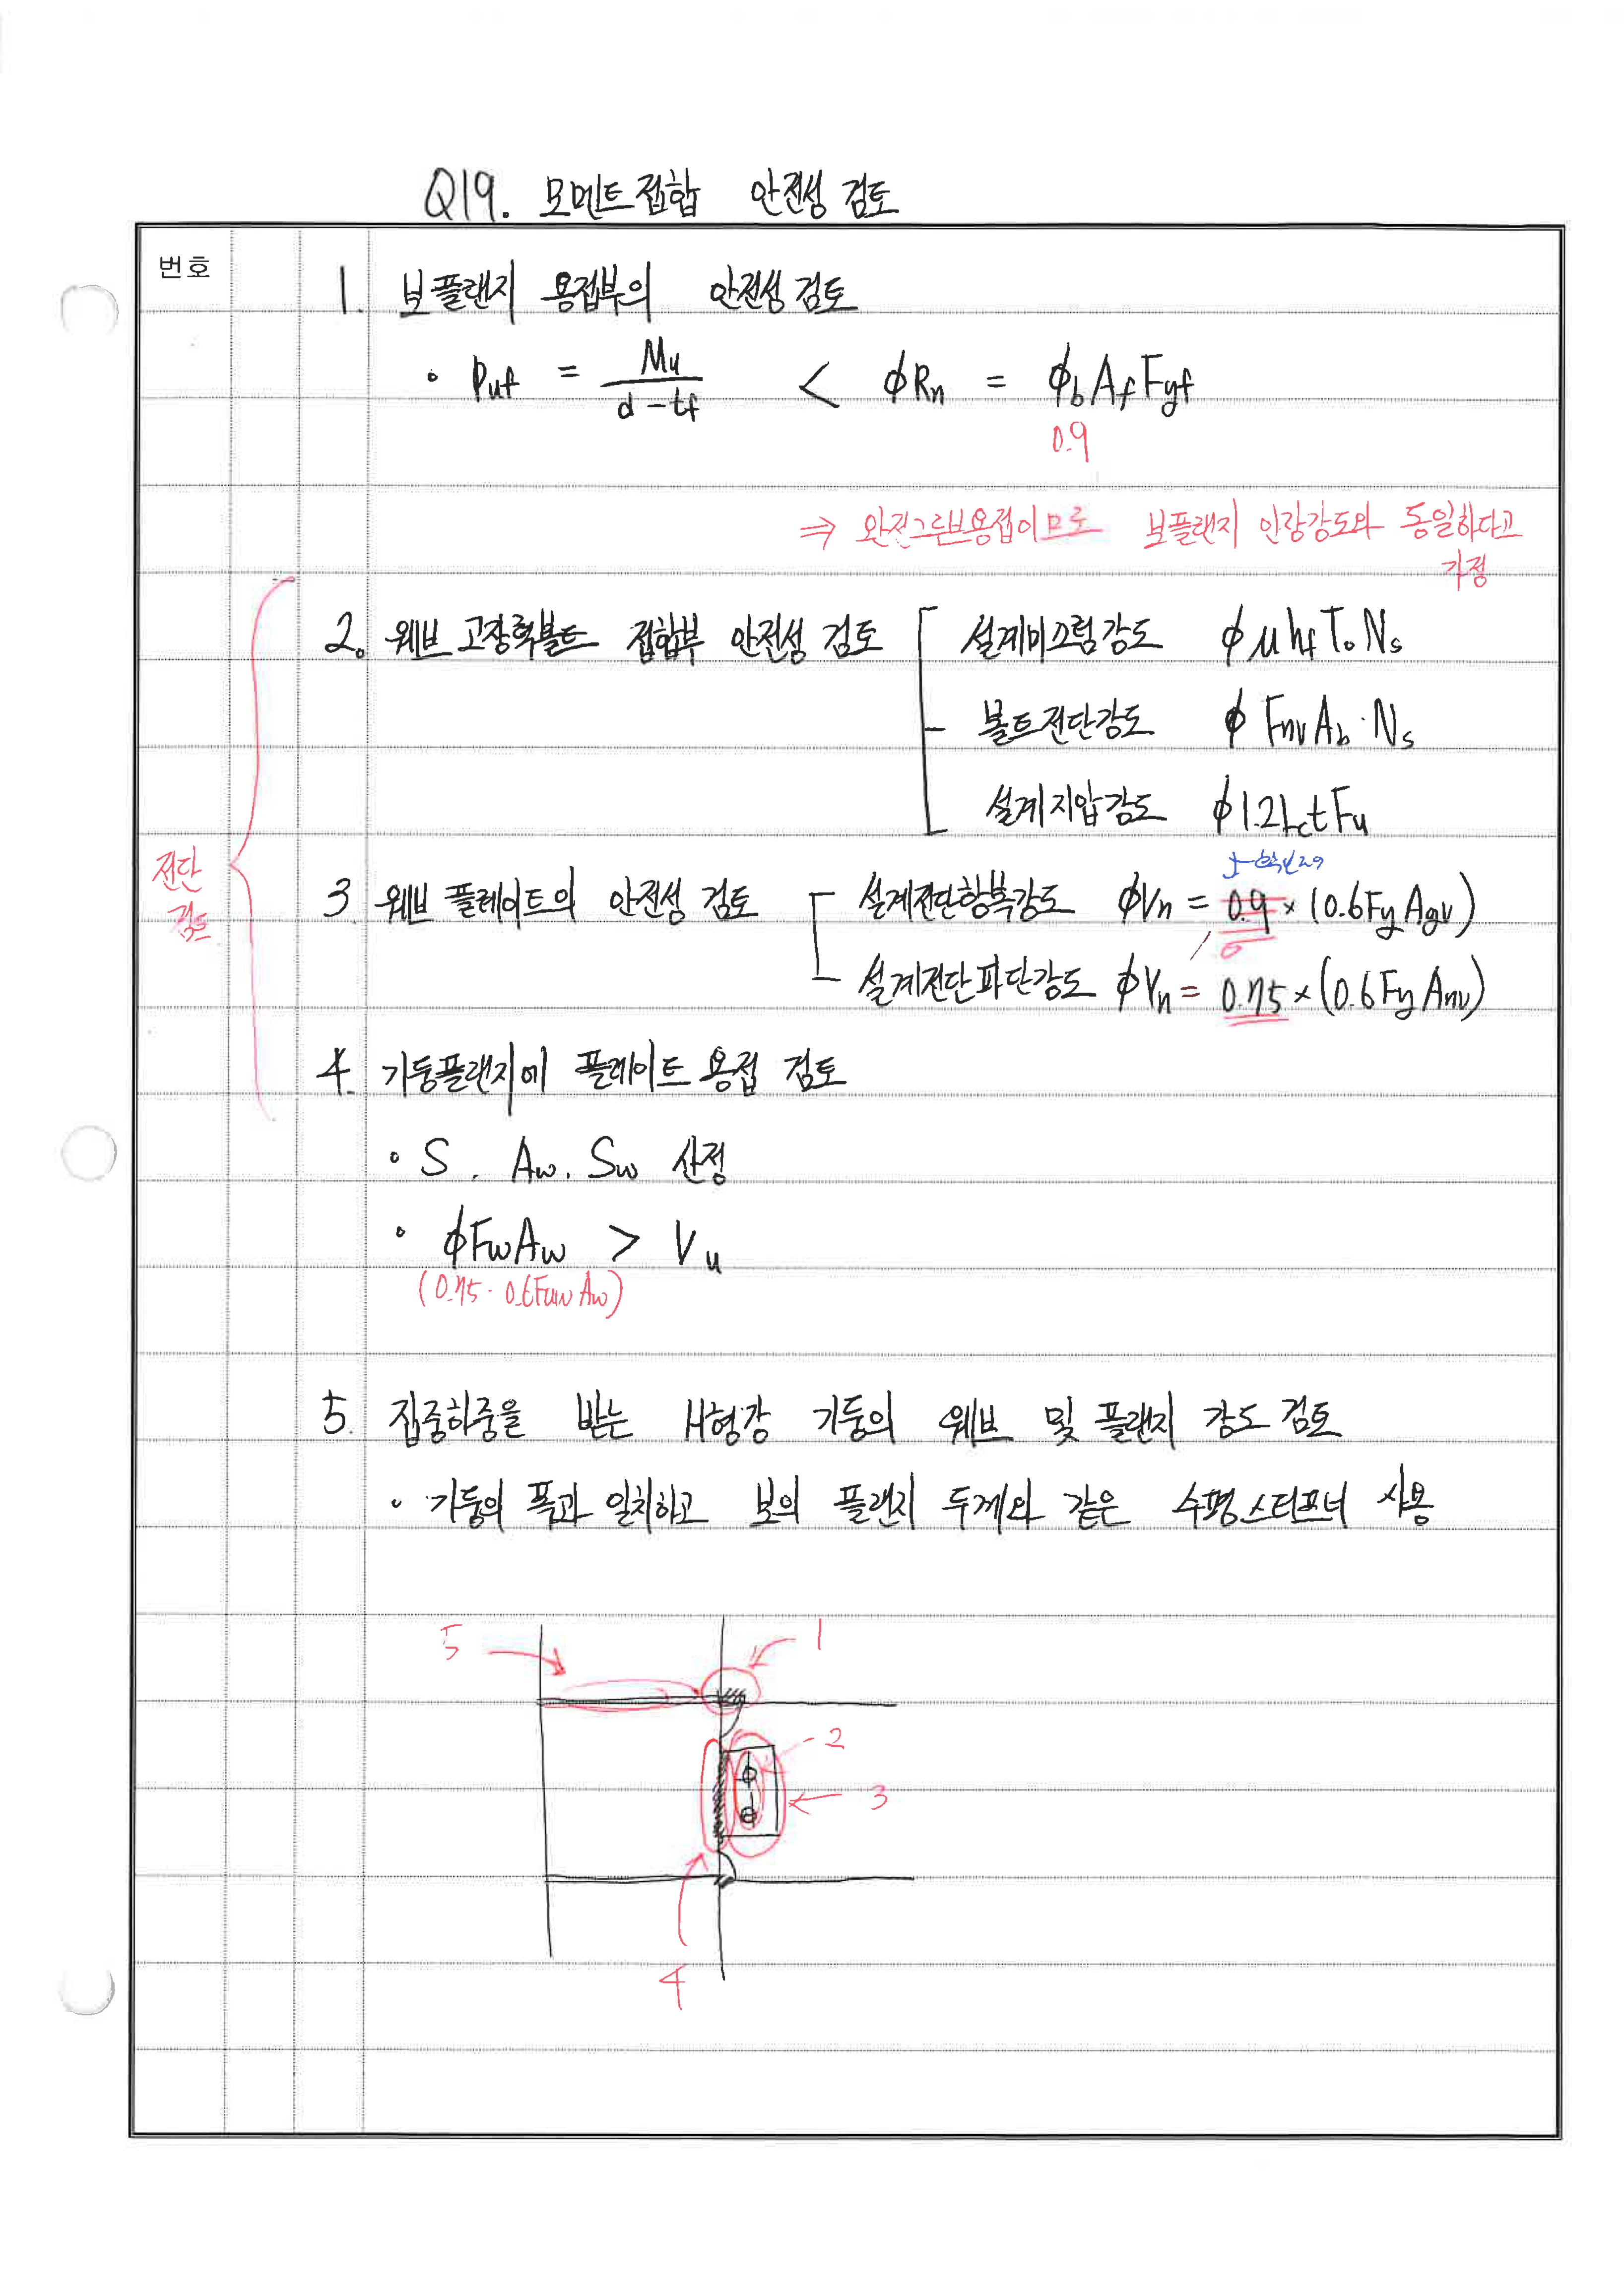 Q19. 모멘트접합 안전성 검토
번호
1. 보플랜지 용접부의 안전성 검토
• Puf = Mu / (d - tf) < ϕRn = ϕb Af Fyf
0.9
⇒ 완전그루브용접이므로 보플랜지 인장강도와 동일하다고
가정
2. 웨브 고장력볼트 접합부 안전성 검토 설계미끄럼강도 ϕ μ hf To Ns
볼트전단강도 ϕ Fnv Ab · Ns
설계지압강도 ϕ1.2 Lc t Fu
전단
검토
3. 웨브 플레이트의 안전성 검토 설계전단항복강도 ϕVn = 0.9 × (0.6 Fy Agv)
설계전단파단강도 ϕVn = 0.75 × (0.6 Fy Anv)
4. 기둥플랜지에 플레이트 용접 검토
• S, Aw, Sw 산정
• ϕFw Aw > Vu
(0.75 · 0.6Fuw Aw)
5. 집중하중을 받는 H형강 기둥의 웨브 및 플랜지 강도 검토
• 기둥의 폭과 일치하고 보의 플랜지 두께와 같은 수평스티프너 사용
5
1
2
3
4